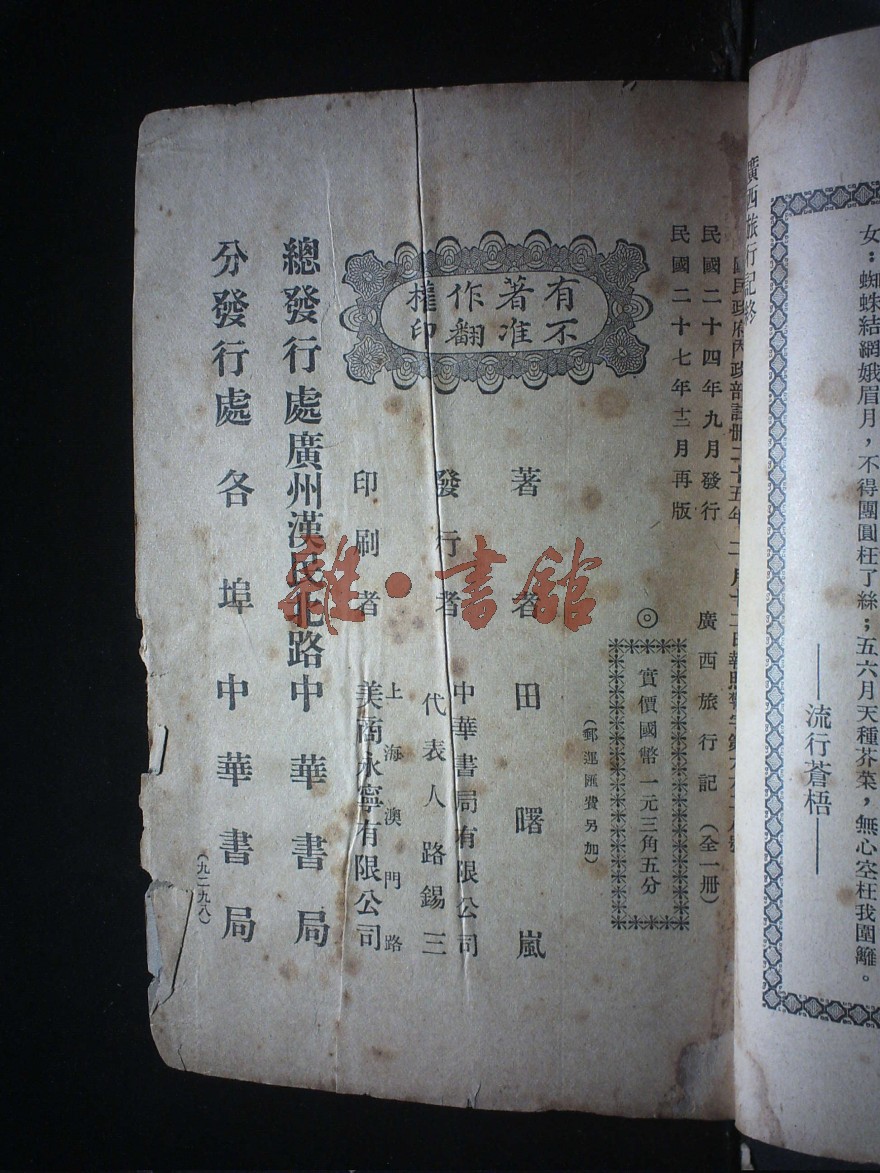 女：蜘蛛結網娥眉月，不得團圓枉了絲；五六月天種芥菜，無心空枉我圍籬。
——流行蒼梧——
廣西旅行記終
國民政府內政部註冊二十五年
民國二十四年九月發行
民國二十七年十二月再版
廣西旅行記（全一冊）
◎實價國幣一元三角五分
（郵運匯費另加）
有著作權
不准翻印
著者 田曙嵐
發行者 中華書局有限公司
代表人路錫三
印刷者 上海澳門路
美商永寧有限公司
總發行處 廣州漢民北路 中華書局
分發行處 各埠 中華書局
（九二九八）
雜·書館